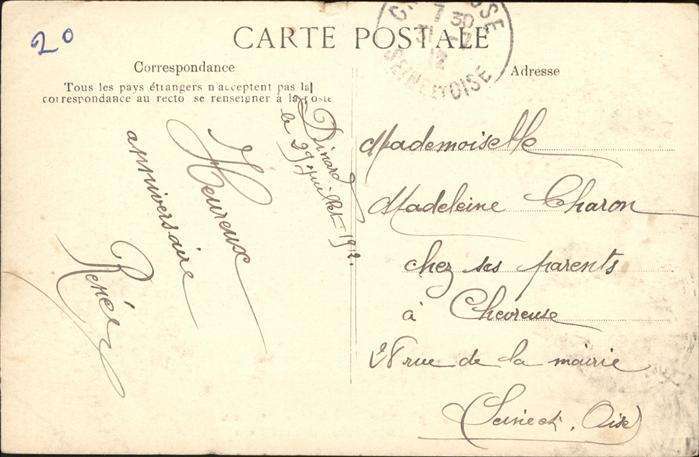 2°
CARTE POSTALE
7 30
SEINE ET OISE
Correspondance
Tous les pays étrangers n'acceptent pas la
correspondance au recto se renseigner à la Poste
Adresse
Dinard
le 29 juillet 1912.
Heureux
anniversaire
Renée
Mademoiselle
Madeleine Charon
chez ses parents
à Chevreuse
28 rue de la mairie
(Seine et Oise)